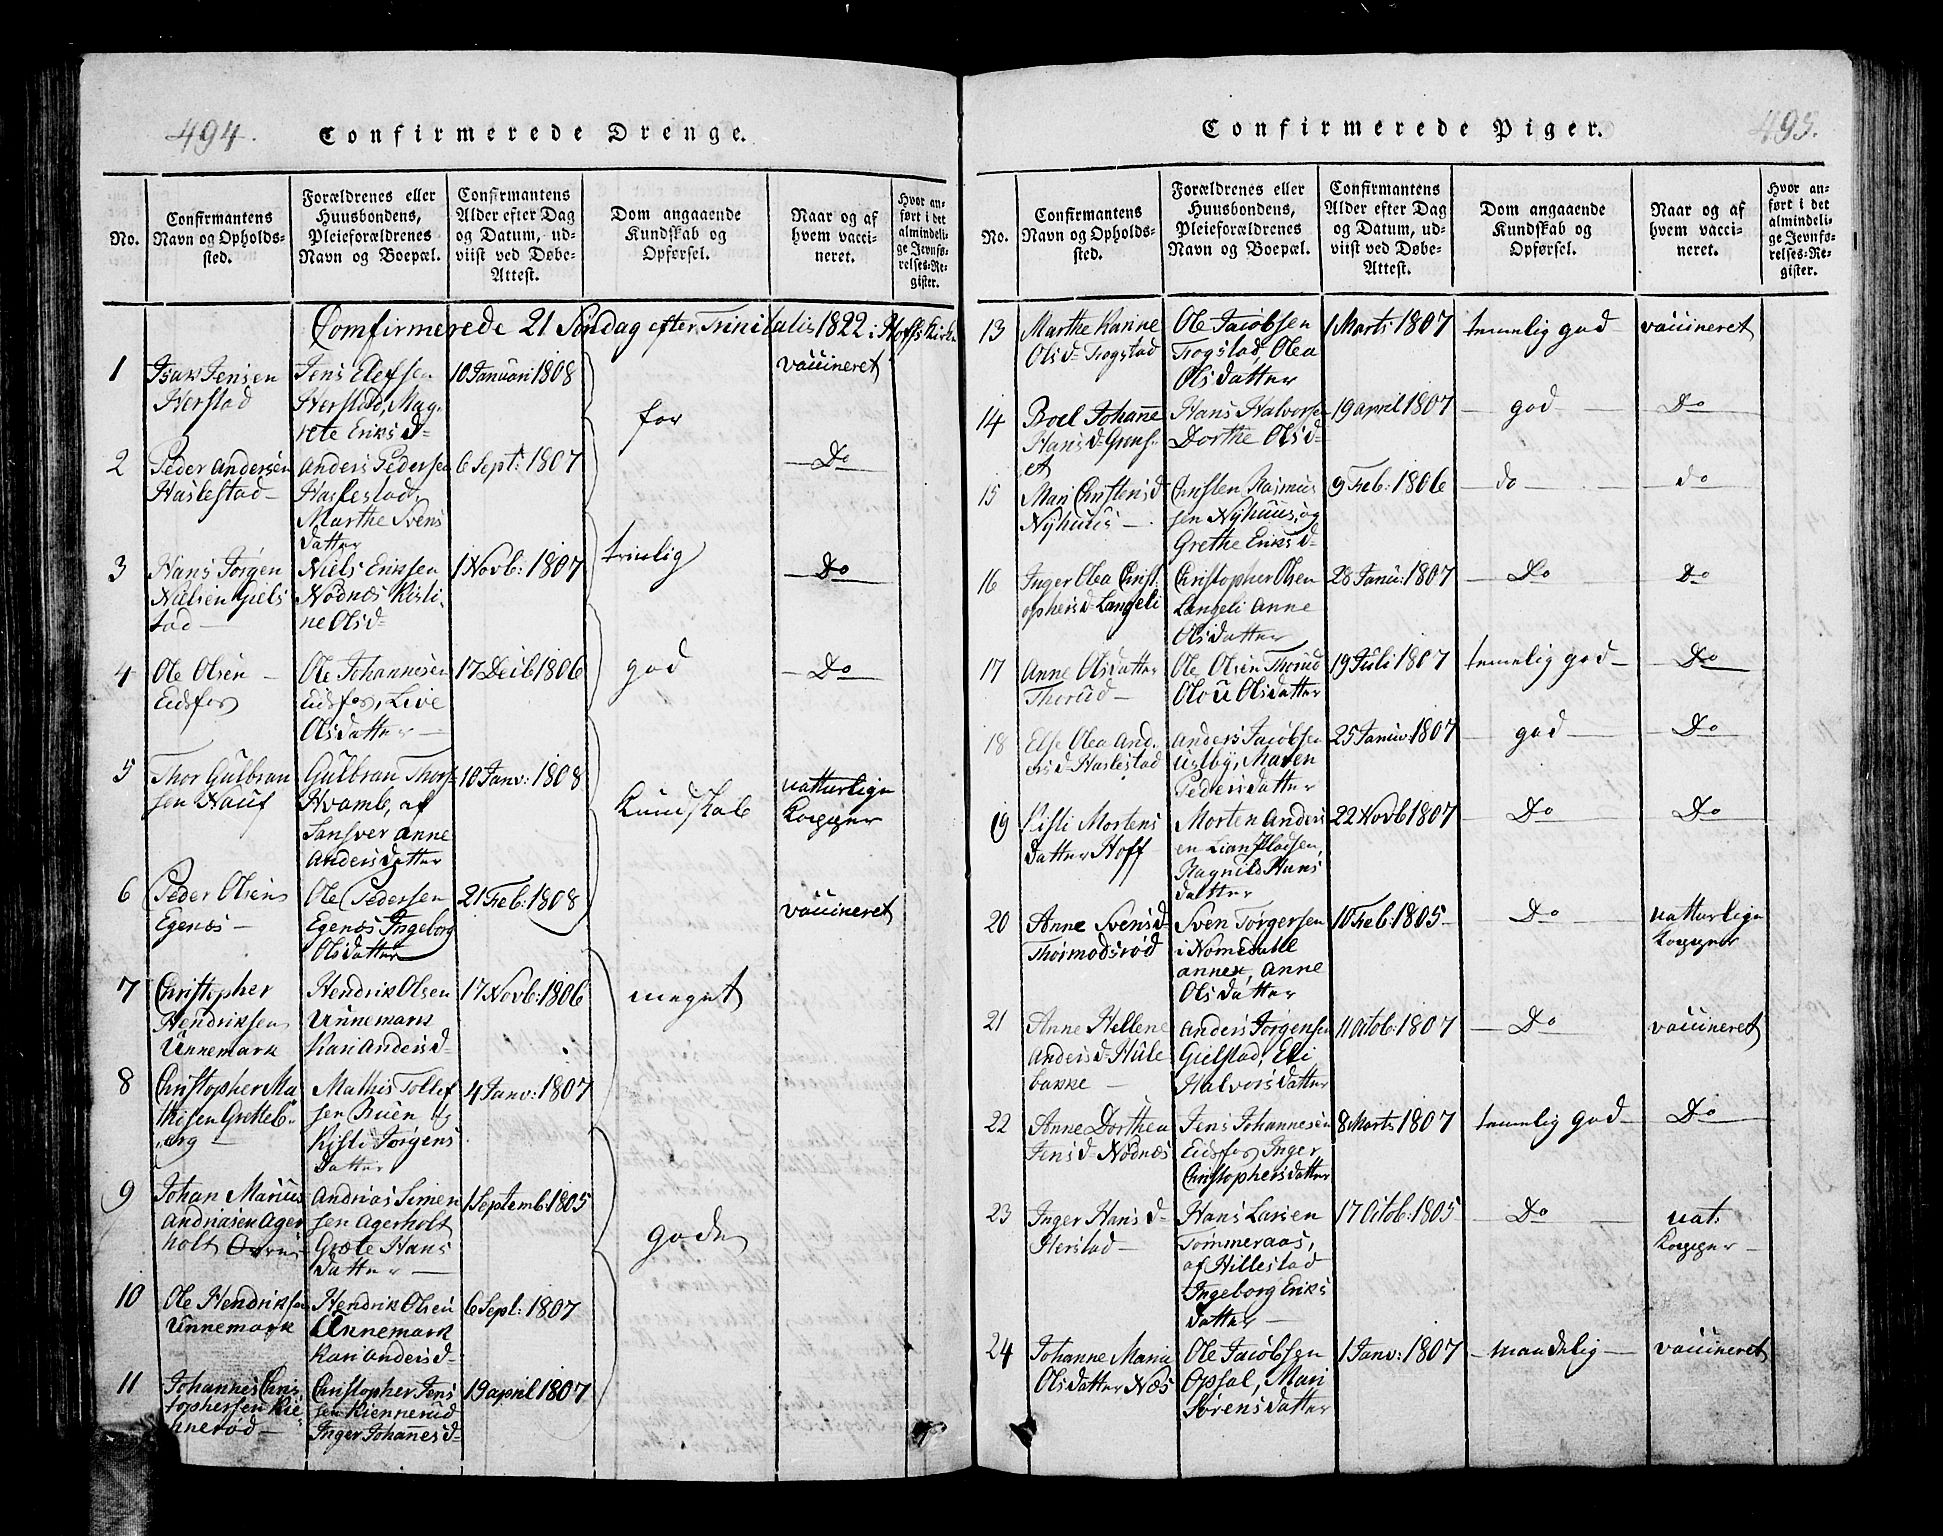 494.
Confirmerede Drenge.
No.
Confirmantens
Navn og Opholds-
sted.
Forældrenes eller
Huusbondens,
Pleieforældrenes
Navn og Boepæl.
Confirmantens
Alder efter Dag
og Datum, ud-
viist ved Døbe-
Attest.
Dom angaaende
Kundskab og
Opførsel.
Naar og af
hvem vacci-
neret.
Hvor an-
ført i det
almindeli-
ge Jevnfø-
relses-Re-
gister.
Comfirmerede 21 Søndag efter Trinitatis 1822 i Hoffs Kirke
1
Isak Jensen
Herstad
Jens Olefsen
Herstad, Mag-
rete Eriks D=
10 Januari 1808
vaccineret
2
Peder Andersen
Haslestad
Anders Pedersen
Haslestad,
Marthe Svens
datter
6 Sept: 1807
Do
3
Hans Jørgen
Nilsen Giels
tad
Niels Eriksen
Nødnæs Kisti-
ne Ols d=
1 Novb: 1807
Do
4
Ole Olsen
Eidsfos
Ole Johannesen
Eidsfos, Live
Olsdatter
17 Decb 1806
Do
5
Thor Gulbran
sen Nauf
Gulbran Thors-
Hvamb, af
Sansver Anne
Andersdatter
10 Janv: 1808
natturlige
Kopper
6
Peder Olsen
Egenæs
Ole Pedersen
Egenæs Ingeborg
Olsdatter
21 Feb: 1808
vaccineret
for
trinlig
god
Kundskab
7
Christopher
Hendriksen
Unnemark
Hendrik Olsen
Unnemark
Kari Anders d=
17 Novb: 1806
8
Christopher Ma
thisen Grotteb-
erg
Mathis Tollef
sen Buen og
Kisti Jørgens
datter
4 Janv: 1807
9
Johan Marius
Andriasen Ager
holt
Andrias Simen
sen Agerholt
Grete Hans
datter
1 Septemb: 1805
10
Ole Hendriksen
Unnemark
Hendrik Olsen
Unnemark
Kari Anders d=
6 Sept: 1807
11
Johannes Chris
tophersen Kie-
nnerød
Christopher Jens
sen Kiennerud
Inger Johanes d=
19 april 1807
meget
gode
495.
Confirmerede Piger.
No.
Confirmantens
Navn og Opholds-
sted.
Forældrenes eller
Huusbondens,
Pleieforældrenes
Navn og Boepæl.
Confirmantens
Alder efter Dag
og Datum, ud-
viist ved Døbe-
Attest.
Dom angaaende
Kundskab og
Opførsel.
Naar og af
hvem vacci-
neret.
Hvor an-
ført i det
almindeli-
ge Jevnfø-
relses-Re-
gister.
13
Marthe Karine
Ols d= Trogstad
Ole Jacobsen
Trogstad, Olea
Olsdatter
1 Marts 1807
temelig god
vaccineret
14
Boel Johanne
Hans d=
et
Hans Halvorse
Dorthe Ols d=
19 april 1807
god
Do
15
Mari Christens d
Nyhuus
Christen Rasmus
sen Nyhuus, og
Grethe Eriks d=
9 Feb: 1806
do
do
16
Inger Olea Christ
ophers d= Langeli
Christopher Olsen
Langeli Anne
Olsdatter
28 Janu: 1807
Do
Do
17
Anne Olsdatter
Thorud
Ole Olsen Thorud
Olou Olsdatter
19 Juli 1807
temelig god
Do
18
Else Olea And
ers d= Haslestad
Anders Jacobsen
Uslby, Maren
Pedersdatter
25 Januv: 1807
god
Do
19
Kisti Mortens
datter Hoff
Morten Anders
en Lian Pladsen,
Ragnild Hans
datter
22 Novb 1807
Do
Do
20
Anne Svens d
Thormodsrød
Sven Torgersen
i Nomedalle
annex, Anne
Olsdatter
10 Feb: 1805
Do
natturlige
Kopper
21
Anne Hellene
Anders d= Hule
bakke
Anders Jørgensen
Gielstad, Eli
Halvorsdatter
11 Octob: 1807
Do
vaccineret
22
Anne Dorthea
Jens d= Nødnæs
Jens Johannesen
Eidsfos Inger
Christophersdatter
8 Marts 1807
temelig god
Do
23
Inger Hans d=
Herstad
Hans Larsen
Tømmeraas,
af Hillestad
Ingeborg Eriks
datter
17 Octob: 1805
Do
nat:
Kopper
24
Johanne Maria
Olsdatter Næs
Ole Jacobsen
Opsal, Mari
Sørensdatter
1 Janv: 1807
maadelig
vaccineret